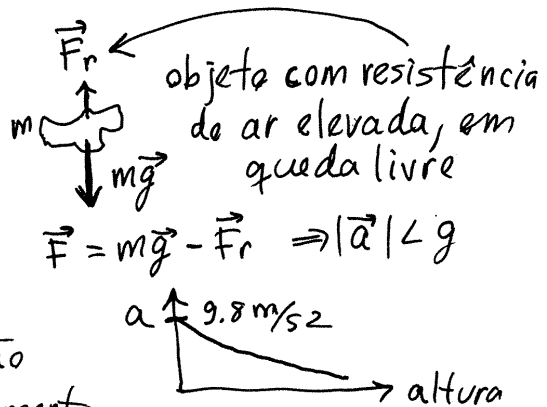 F⃗r
objeto com resistência
m
de ar elevada, em
queda livre
mg⃗
F⃗ = mg⃗ - F⃗r ⇒ |a⃗| < g
a
9.8 m/s2
altura